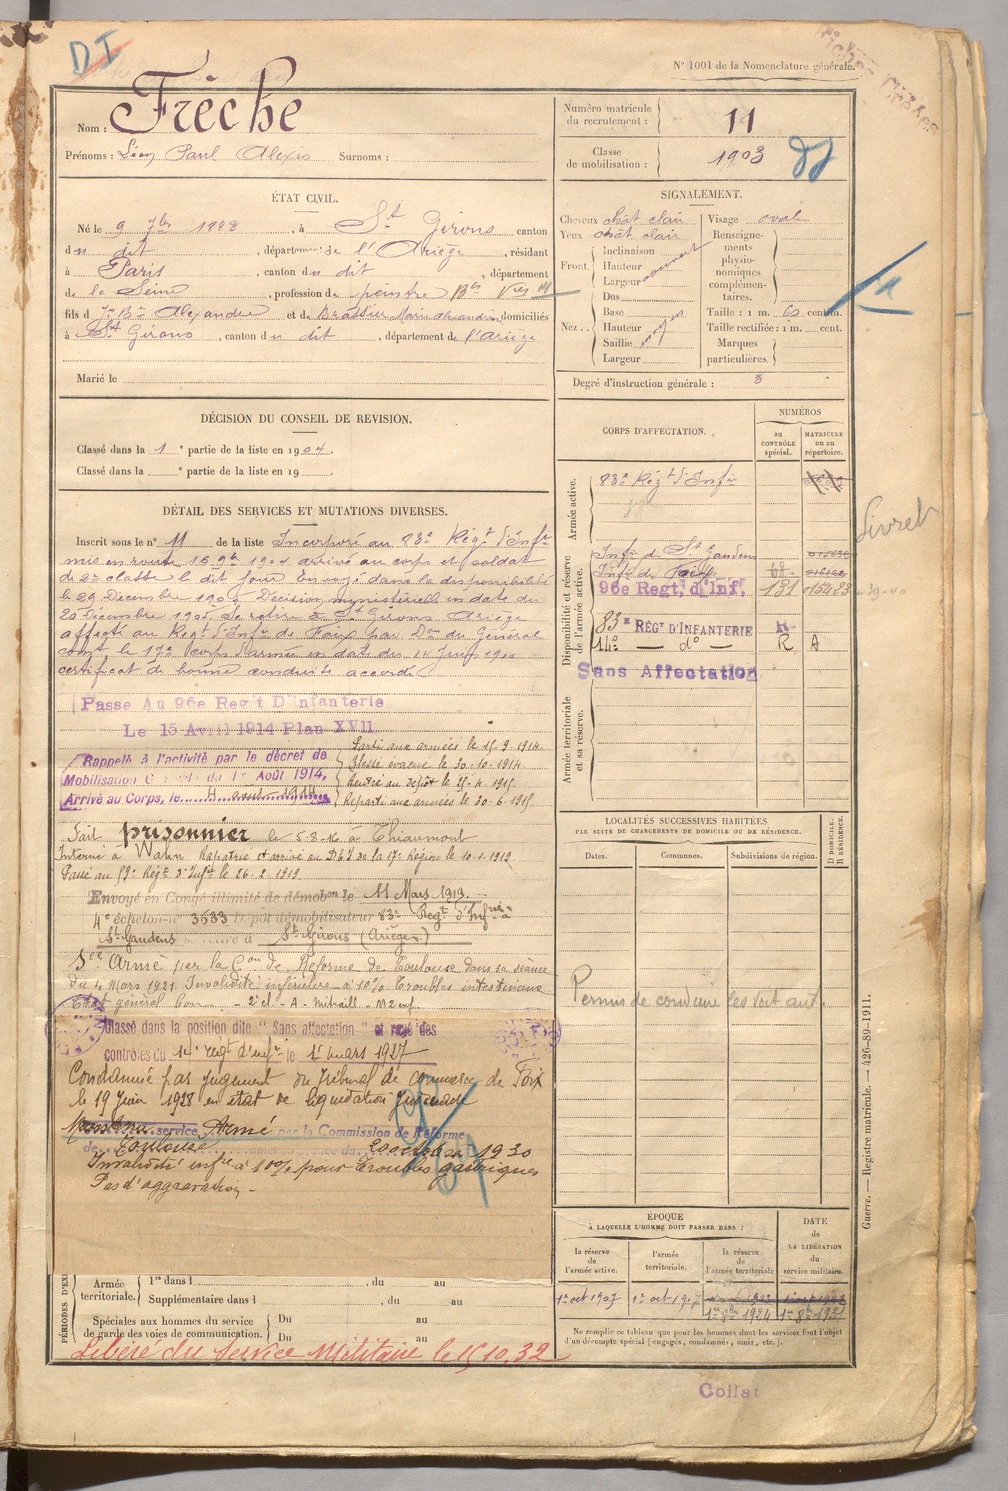 DI
N° 1001 de la Nomenclature générale.
Nom : Frèche
Prénoms : Léon Paul Alexis Surnoms :
Numéro matricule du recrutement : 11
Classe de mobilisation : 1903
ÉTAT CIVIL.
Né le 9 7bre 1888, à St Girons canton
du dit, département de l'Ariège, résidant
à Paris, canton du dit, département
de la Seine, profession de peintre Bts
fils d Jn Bte Alexandre et de Brastier Marie Alexandrine domiciliés
à St Girons, canton du dit, département de l'Ariège
Marié le
SIGNALEMENT.
Cheveux chât clair
Yeux chât clair
Front. Inclinaison
Hauteur
Largeur couvert
Nez. Dos
Base
Hauteur moyen
Saillie
Largeur
Visage ovale
Renseignements physionomiques complémentaires.
Taille : 1 m. 60 centim.
Taille rectifiée : 1 m. cent.
Marques particulières.
Degré d'instruction générale : 3
DÉCISION DU CONSEIL DE REVISION.
Classé dans la 1e partie de la liste en 1904.
Classé dans la e partie de la liste en 19
DÉTAIL DES SERVICES ET MUTATIONS DIVERSES.
Inscrit sous le n° 11 de la liste Incorporé au 83e Régt d'Infie
mis en route 15 9bre 1904 arrivé au corps et soldat
de 2e classe le dit jour Envoyé dans la disponibilité
le 29 Décembre 1905 Décision ministérielle en date du
20 Décembre 1905 Se retire à St Girons Ariège
affecté au Régt d'Infie de Foix par Don du Général
Comt le 17e Corps d'armée en date du
certificat de bonne conduite accordé
Passe Au 96e Regt D'Infanterie
Le 15 Avril 1914 Plan XVII
Rappelé à l'activité par le décret de
Mobilisation Général du 1er Août 1914,
Arrivé au Corps, le 4 août 1914
Parti aux armées le 15-9-1914
Blessé évacué le 30-10-1914
Rentré au dépôt le 25-4-1915
Reparti aux armées le 30-6-1915
Fait prisonnier le 5-8-16 à Thiaumont
Interné à Wahn Rapatrié et arrivé au D.I. de la 17e Région le 10-1-1919
Passé au 59e Régt d'Infie le 26-2-1919
Envoyé en Congé illimité de démobon le 11 Mars 1919.
4e échelon n° 3533 Dépôt démobilisateur 83e Regt d'Infie à
St Gaudens se retire à St Girons (Ariège)
Sce Armé par la Con de Réforme de Toulouse dans sa séance
du 4 Mars 1921 Invalidité inférieure à 10% Troubles intestinaux
Etat général bon - 2e cl - A - Mitraill - M2 inf
Classé dans la position dite "Sans affectation" et rayé des
contrôles du 14e regt d'infie le 1er mars 1927
Condamné par jugement du Tribunal de commerce de Foix
le 19 Juin 1928 en état de liquidation judiciaire
Maintenu service Armé par la Commission de Réforme
de Toulouse du 20 octobre 1930
Invalidité infre à 10% pour Troubles gastriques
Pas d'aggravation -
CORPS D'AFFECTATION.
NUMÉROS
au CONTRÔLE spécial.
MATRICULE ou au répertoire.
Armée active.
83e Régt d'Infie
Disponibilité et réserve de l'armée active.
Infie de St Gaudens
Infie de Foix 68
96e Regt. d'Inf. 131 015423
83e RÉGt D'INFANTERIE R
14e — d° — R A
Sans Affectation
Armée territoriale et sa réserve.
Livret
39-40
LOCALITÉS SUCCESSIVES HABITÉES
PAR SUITE DE CHANGEMENTS DE DOMICILE OU DE RÉSIDENCE.
Dates. Communes. Subdivisions de région.
D DOMICILE. R RÉSIDENCE.
Permis de conduire les voit auto.
ÉPOQUE
À LAQUELLE L'HOMME DOIT PASSER DANS :
la réserve de l'armée active.
l'armée territoriale.
la réserve de l'armée territoriale
DATE de LA LIBÉRATION du service militaire.
1er oct 1907 1er oct 1917
1er 8bre 1924
Ne remplir ce tableau que pour les hommes dont les services font l'objet
d'un décompte spécial (engagés, condamnés, omis, etc.).
PÉRIODES D'EX
Armée territoriale.
1re dans l , du au
Supplémentaire dans l , du au
Spéciales aux hommes du service
de garde des voies de communication.
Du au
Du au
Libéré du Service Militaire le 15.10.32
Collat
Guerre. — Registre matricule. — 426-89-1911.